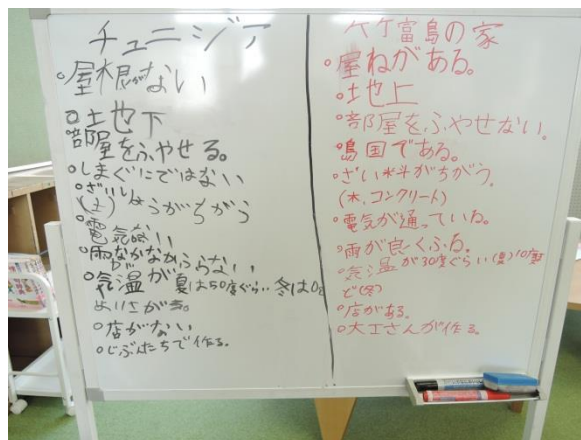 チュニジア
○屋根がない
○土地下
部屋をふやせる。
○しまぐにではない
○ざいりょうがちがう
(土)
○電気がない
○雨がなかなかふらない
○気温が夏は50度ぐらい 冬は0度
よりさがる。
○店がない
○じぶんたちで作る。
竹富島の家
○屋ねがある。
○土地上
○部屋をふやせない。
○島国である。
○ざい料がちがう。
(木、コンクリート)
○電気が通っている。
○雨が良くふる。
○気温が30度ぐらい(夏)10度
ど(冬)
○店がある。
○大工さんが作る。